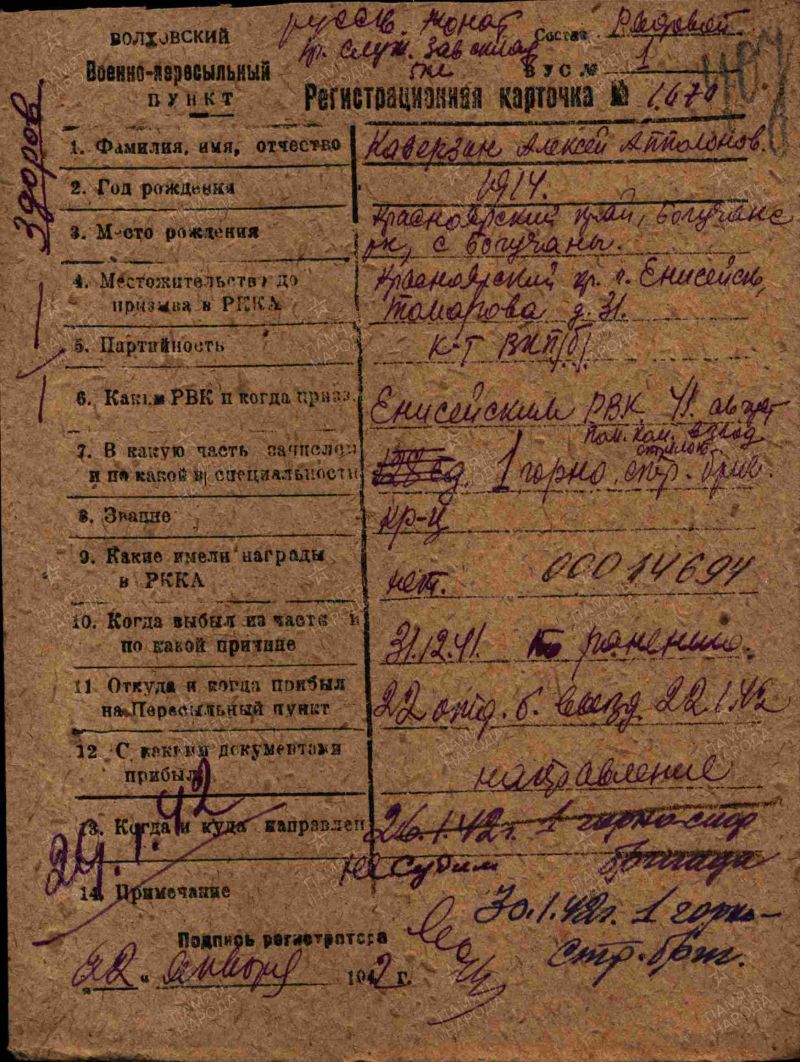 русск. женат Состав Рядовой
гр. служ. зав складом
ВОЛХОВСКИЙ
Военно-пересыльный
ПУНКТ
ВУС № 1
Регистрационная карточка № 1670
Здоров
1. Фамилия, имя, отчество Каверзин Алексей Апполонов.
2. Год рождения 1914.
3. Место рождения Красноярский край, Богучанс
рн, с Богучаны.
4. Местожительство до Красноярский кр. г. Енисейск,
призыва в РККА д. 31.
5. Партийность к-т ВКП(б)
6. Каким РВК и когда призв. Енисейским РВК 41. август
7. В какую часть зачислен пом. ком. взвод
и по какой в специальности 1 горно. стр. бриг.
8. Звание кр-ц
9. Какие имели награды
в РККА нет. 00014694
10. Когда выбыл из части и
по какой причине 31.12.41. по ранению.
11 Откуда и когда прибыл
на Пересыльный пункт 22 отд. б. выезд 22.1.42
12 С какими документами
прибыл направление
29.1.42
13. Когда и куда направлен 26.1.42г. 1 горно-стр
бригада
не судим
14 Примечание 30.1.42г. 1 горно-
стр. бриг.
Подпись регистратора
„22" января 1942 г.
ПАМЯТЬ
НАРОДА